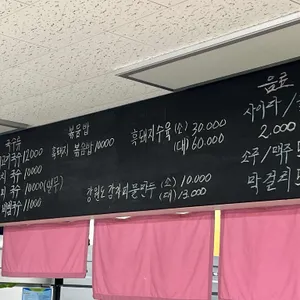 국수류
국수 12000
국수 10000
국수 10000(비빔)
비빔국수 11000
볶음밥
흑돼지 볶음밥 10000
흑돼지수육 (소) 30.000
(대) 60.000
강원도 감자떡물만두 (소) 10.000
(대) 13.000
음료
사이다 /
2.000
소주 / 맥주
막걸리